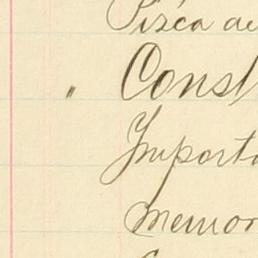 Pisca de
" Const
Importa
Memor